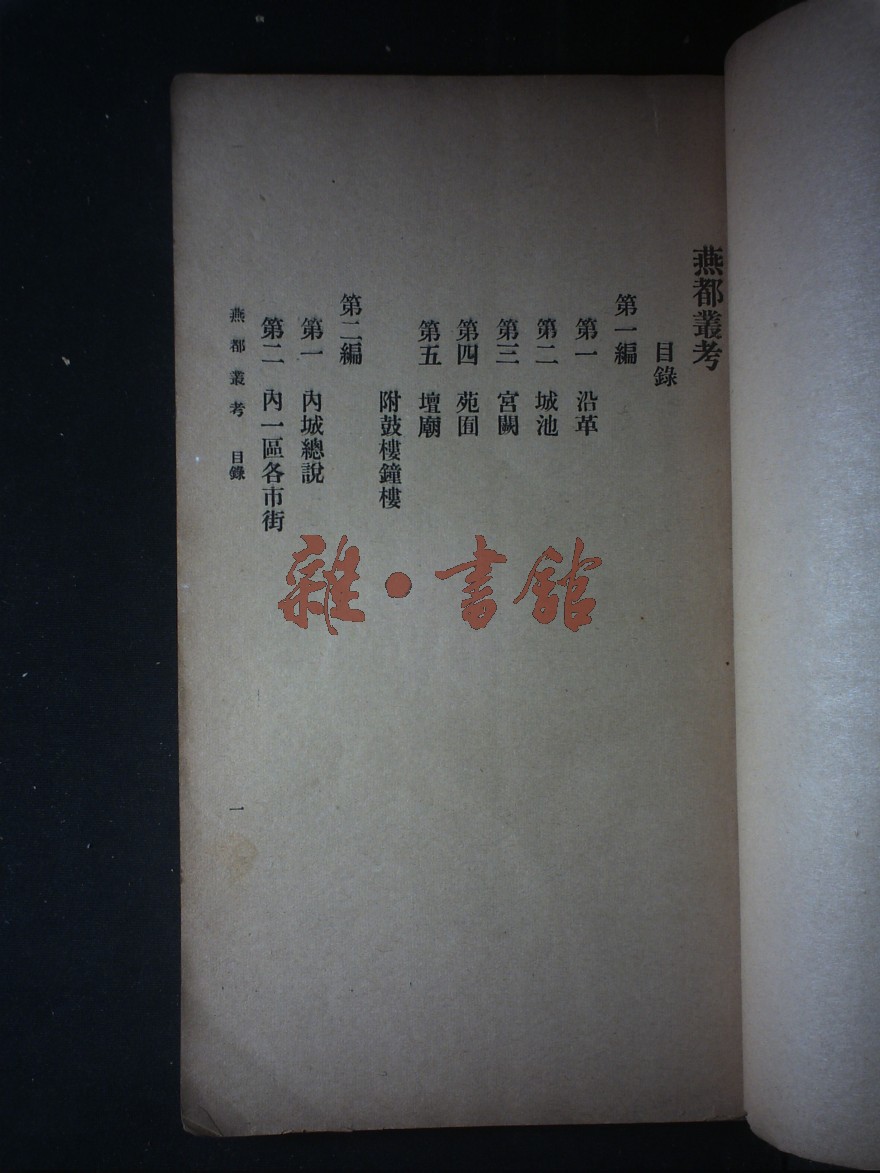 燕都叢考
目錄
第一編
第一 沿革
第二 城池
第三 宮闕
第四 苑囿
第五 壇廟
附鼓樓鐘樓
第二編
第一 內城總說
第二 內一區各市街
燕都叢考 目錄 一
雜·書館